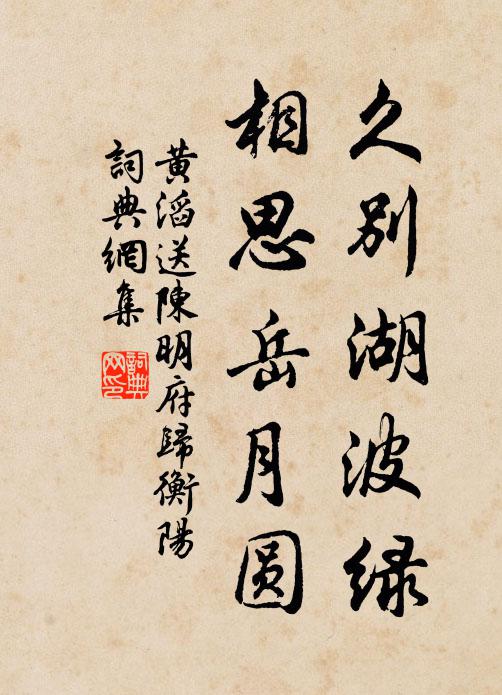 久别湖波绿
相思岳月圆
黃滔送陳明府歸衡陽
詞典網集
詞典网印